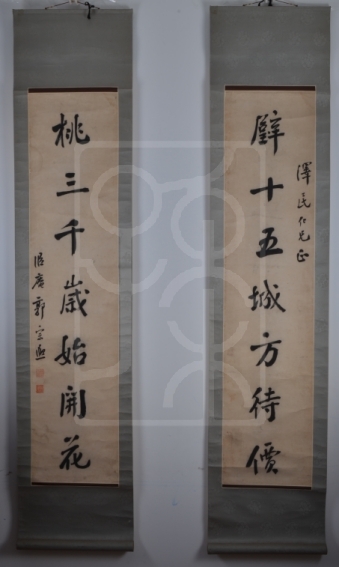 璧十五城方待價
澤民仁兄正
桃三千歲始開花
郭宗熙